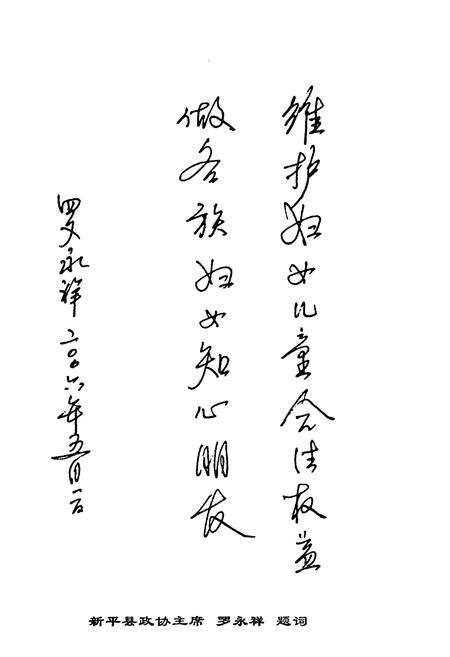 维护妇女儿童合法权益
做各族妇女知心朋友
罗永祥 二〇〇六年五月一日
新平县政协主席 罗永祥 题词